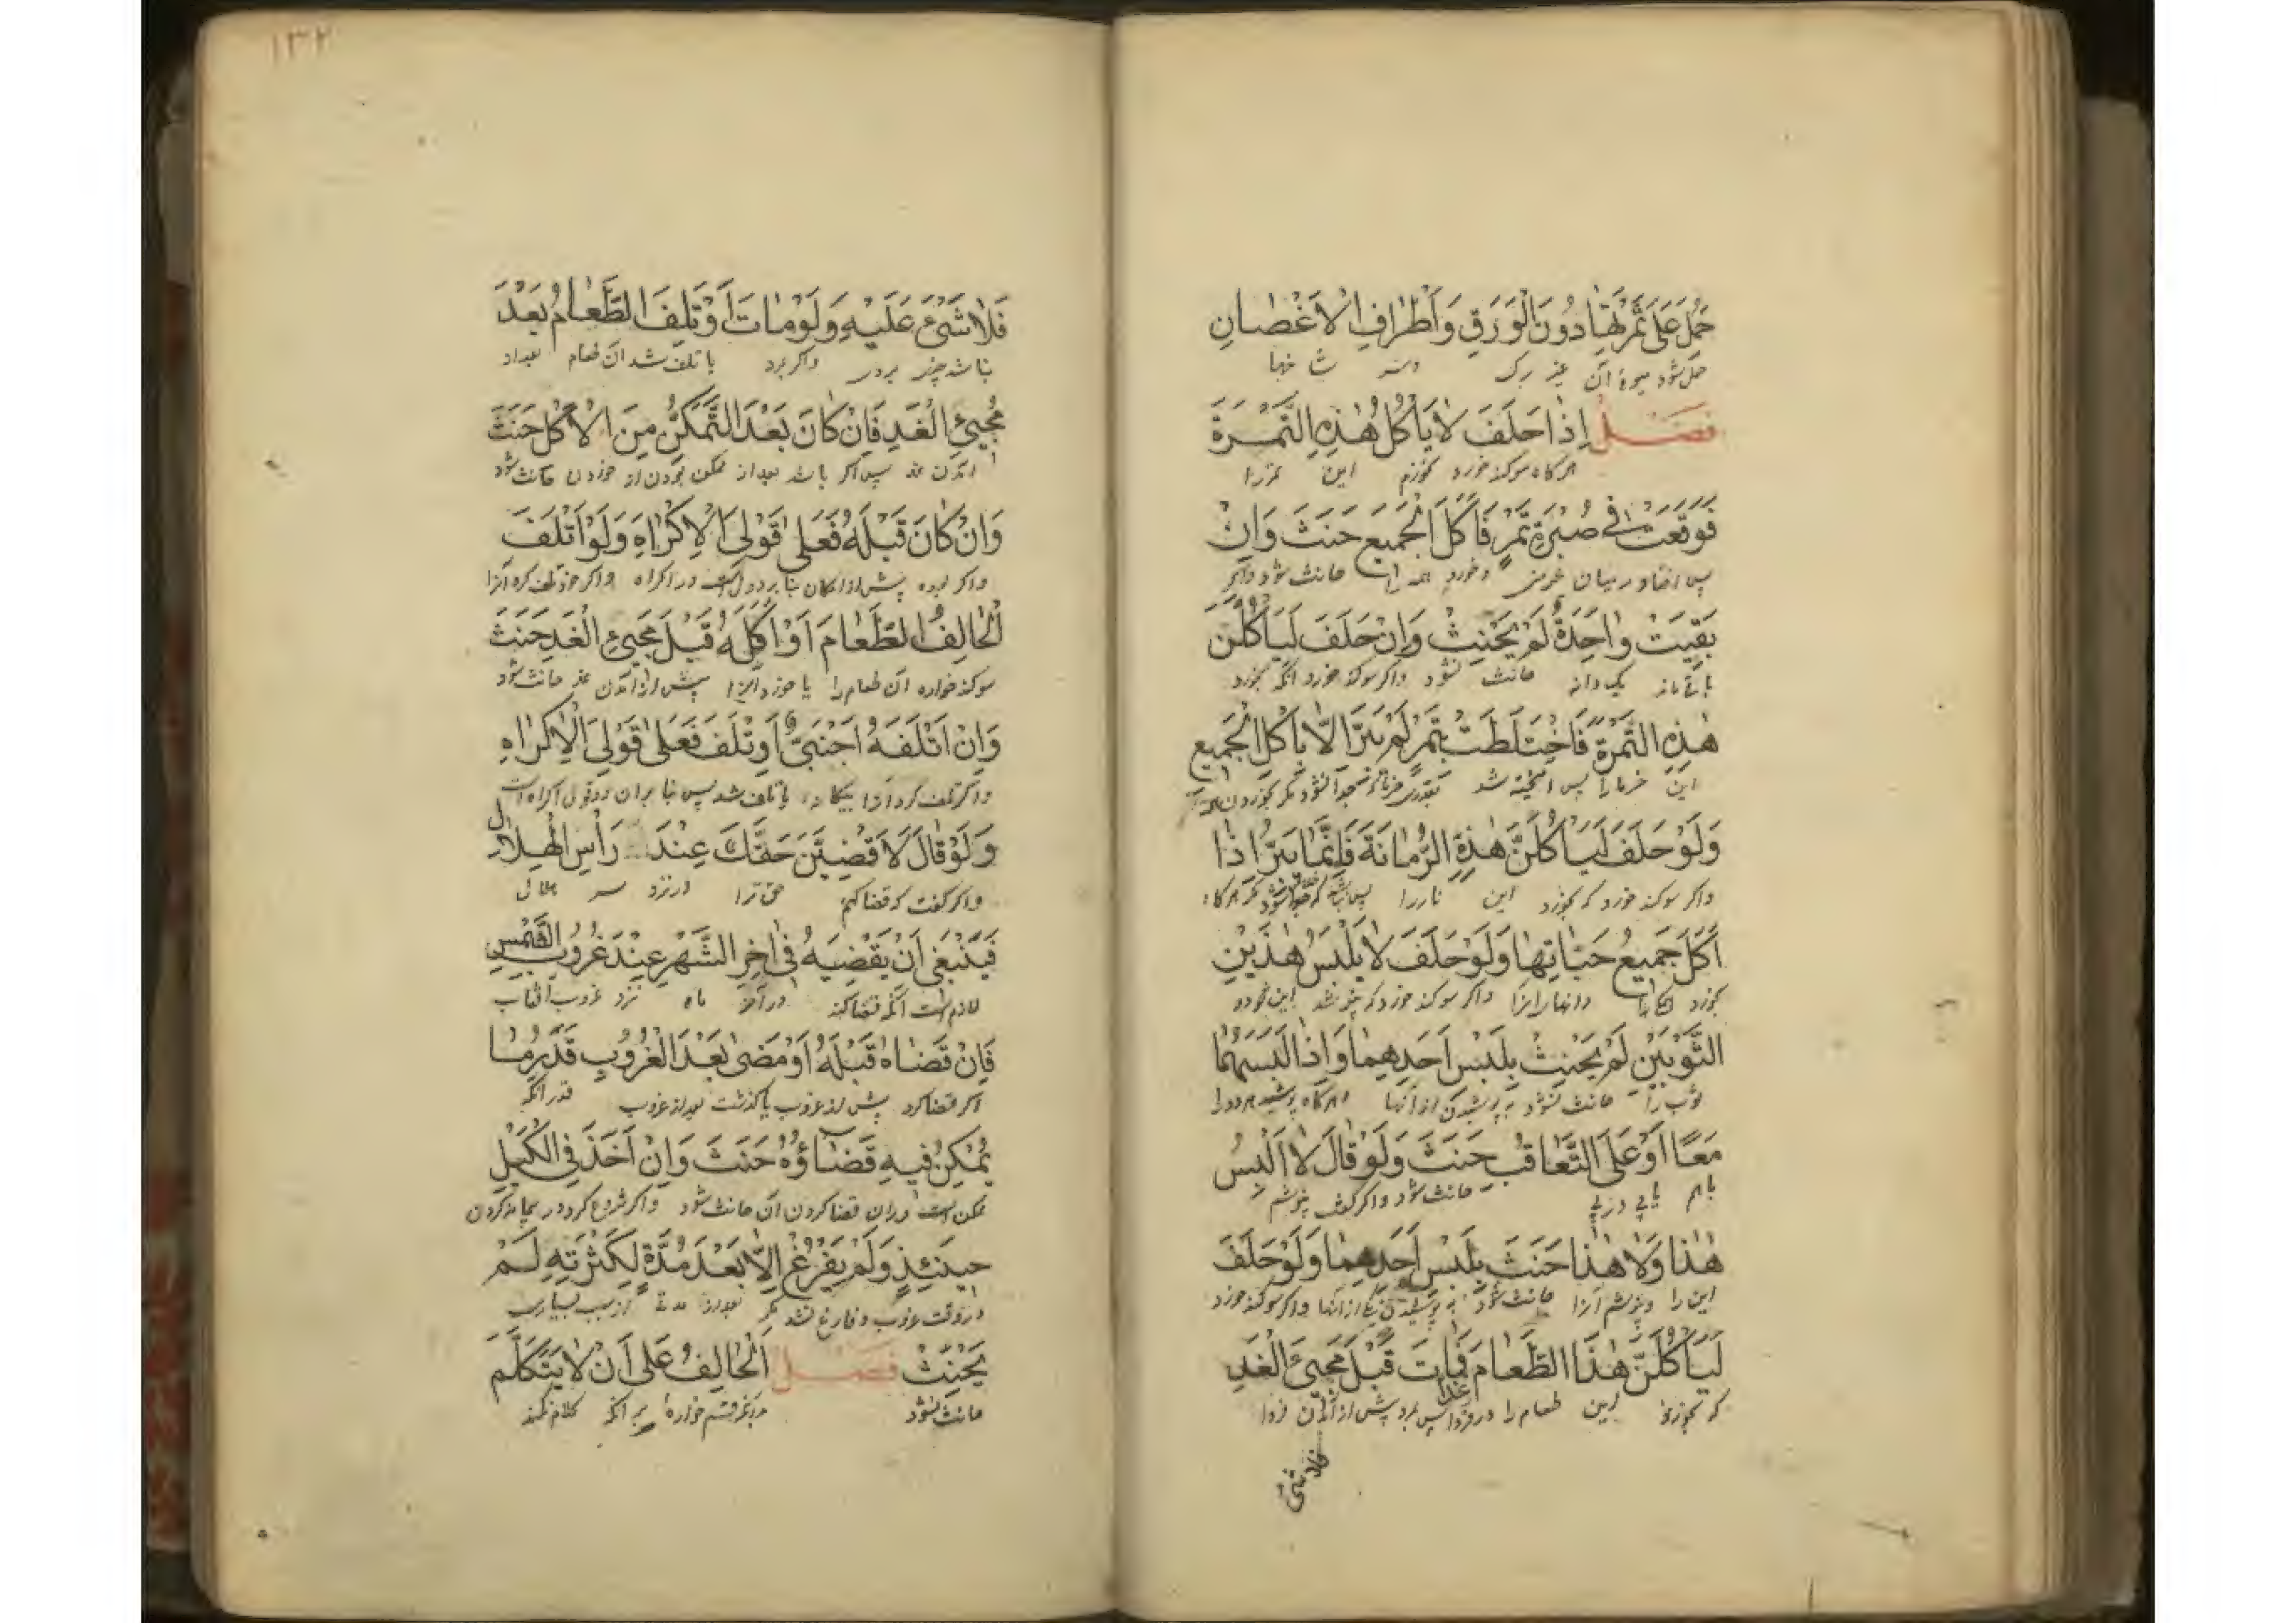 حُمِلَ عَلَى ثَمَرَتِهَا دُونَ الْوَرَقِ وَأَطْرَافِ الْأَغْصَانِ
حمل شود میوهٔ آن غیر برک وسر شاخها
فَصْلٌ إِذَا حَلَفَ لَا يَأْكُلُ هٰذِهِ التَّمْرَةَ
هرکاه سوکند خورد نخورم این تمر را
فَوَقَعَتْ فِي صُبْرَةِ تَمْرٍ فَأَكَلَ الْجَمِيعَ حَنَثَ وَإِنْ
پس افتاد درمیان خرمن وخورد همه را حانث شود واکر
بَقِيَتْ وَاحِدَةٌ لَمْ يَحْنِثْ وَإِنْ حَلَفَ لَيَأْكُلَنَّ
باقی ماند یکدانه حانث نشود واکر سوکند خورد آنکه بخورد
هٰذِهِ التَّمْرَةَ فَاخْتَلَطَتْ بِتَمْرٍ لَمْ يَبَرَّ إِلَّا بِأَكْلِ الْجَمِيعِ
این خرما را پس آمیخته شد مکر بخوردن همه
وَلَوْ حَلَفَ لَيَأْكُلَنَّ هٰذِهِ الرُّمَّانَةَ فَإِنَّمَا يَبَرُّ إِذَا
واکر سوکند خورد که بخورد این نار را مکر هرکاه
أَكَلَ جَمِيعَ حَبَّاتِهَا وَلَوْ حَلَفَ لَا يَلْبَسُ هٰذَيْنِ
بخورد دانهارا واکر سوکند خورد که نپوشد این هردو
الثَّوْبَيْنِ لَمْ يَحْنِثْ بِلَبْسِ أَحَدِهِمَا وَإِذَا لَبِسَهُمَا
ثوب را حانث نشود به پوشیدن یکی ازآنها وهرکاه پوشید هردورا
مَعًا أَوْ عَلَى التَّعَاقُبِ حَنَثَ وَلَوْ قَالَ لَا أَلْبَسُ
باهم یا پی درپی حانث شود واکر کوید نپوشم
هٰذَا وَلَا هٰذَا حَنَثَ بِلَبْسِ أَحَدِهِمَا وَلَوْ حَلَفَ
این را ونپوشم آنرا حانث شود به پوشیدن یکی ازآنها واکر سوکند خورد
لَيَأْكُلَنَّ هٰذَا الطَّعَامَ غَدًا فَمَاتَ قَبْلَ مَجِيءِ الْغَدِ
که بخورد این طعام را درفردا پس بمرد پیش ازآمدن فردا
فلا شیء
۱۳۲
فَلَا شَيْءَ عَلَيْهِ وَلَوْ مَاتَ أَوْ تَلِفَ الطَّعَامُ بَعْدَ
نباشد چیزی بروی واکر بمرد یا تلف شد آن طعام بعداز
مَجِيءِ الْغَدِ فَإِنْ كَانَ بَعْدَ التَّمَكُّنِ مِنَ الْأَكْلِ حَنَثَ
آمدن غد پس اکر باشد بعداز ممکن بودن از خوردن حانث شود
وَإِنْ كَانَ قَبْلَهُ فَعَلَى قَوْلَيِ الْإِكْرَاهِ وَلَوْ أَتْلَفَ
واکر بوده پیش ازامکان بنا بر دو قول است در اکراه واکر خود تلف کرد آنرا
الْحَالِفُ الطَّعَامَ أَوْ أَكَلَهُ قَبْلَ مَجِيءِ الْغَدِ حَنَثَ
سوکند خواره آن طعام را یا خورد آنرا پیش ازآمدن غد حانث شود
وَإِنْ أَتْلَفَهُ أَجْنَبِيٌّ أَوْ تَلَفَ فَعَلَى قَوْلَيِ الْإِكْرَاهِ
واکر تلف کرد آنرا بیکانه یا تلف شد پس بنا بران دو قول اکراه است
وَلَوْ قَالَ لَأَقْضِيَنَّ حَقَّكَ عِنْدَ رَأْسِ الْهِلَالِ
واکر کفت که قضا کنم حق ترا در نزد سر هلال
فَيَنْبَغِي أَنْ يَقْضِيَهُ فِي آخِرِ الشَّهْرِ عِنْدَ غُرُوبِ الشَّمْسِ
لازم است آنکه قضا کند در آخر ماه نزد غروب آفتاب
فَإِنْ قَضَاهُ قَبْلَهُ أَوْ مَضَى بَعْدَ الْغُرُوبِ قَدْرُ مَا
اکر قضا کرد پیش از غروب یا کذشت بعد از غروب قدر آنکه
يُمْكِنُ فِيهِ قَضَاؤُهُ حَنَثَ وَإِنْ أَخَذَ فِي الْكَيْلِ
ممکن است دران قضا کردن آن حانث شود واکر شروع کرد در پیمانه کردن
حِينَئِذٍ وَلَمْ يَفْرُغْ إِلَّا بَعْدَ مُدَّةٍ لِكَثْرَتِهِ لَمْ
دروقت غروب وفارغ نشد مکر بعداز مدة از سبب بسیاری
يَحْنِثْ فَصْلٌ الْحَالِفُ عَلَى أَنْ لَا يَتَكَلَّمَ
حانث نشود قسم خواره بر آنکه کلام نکند